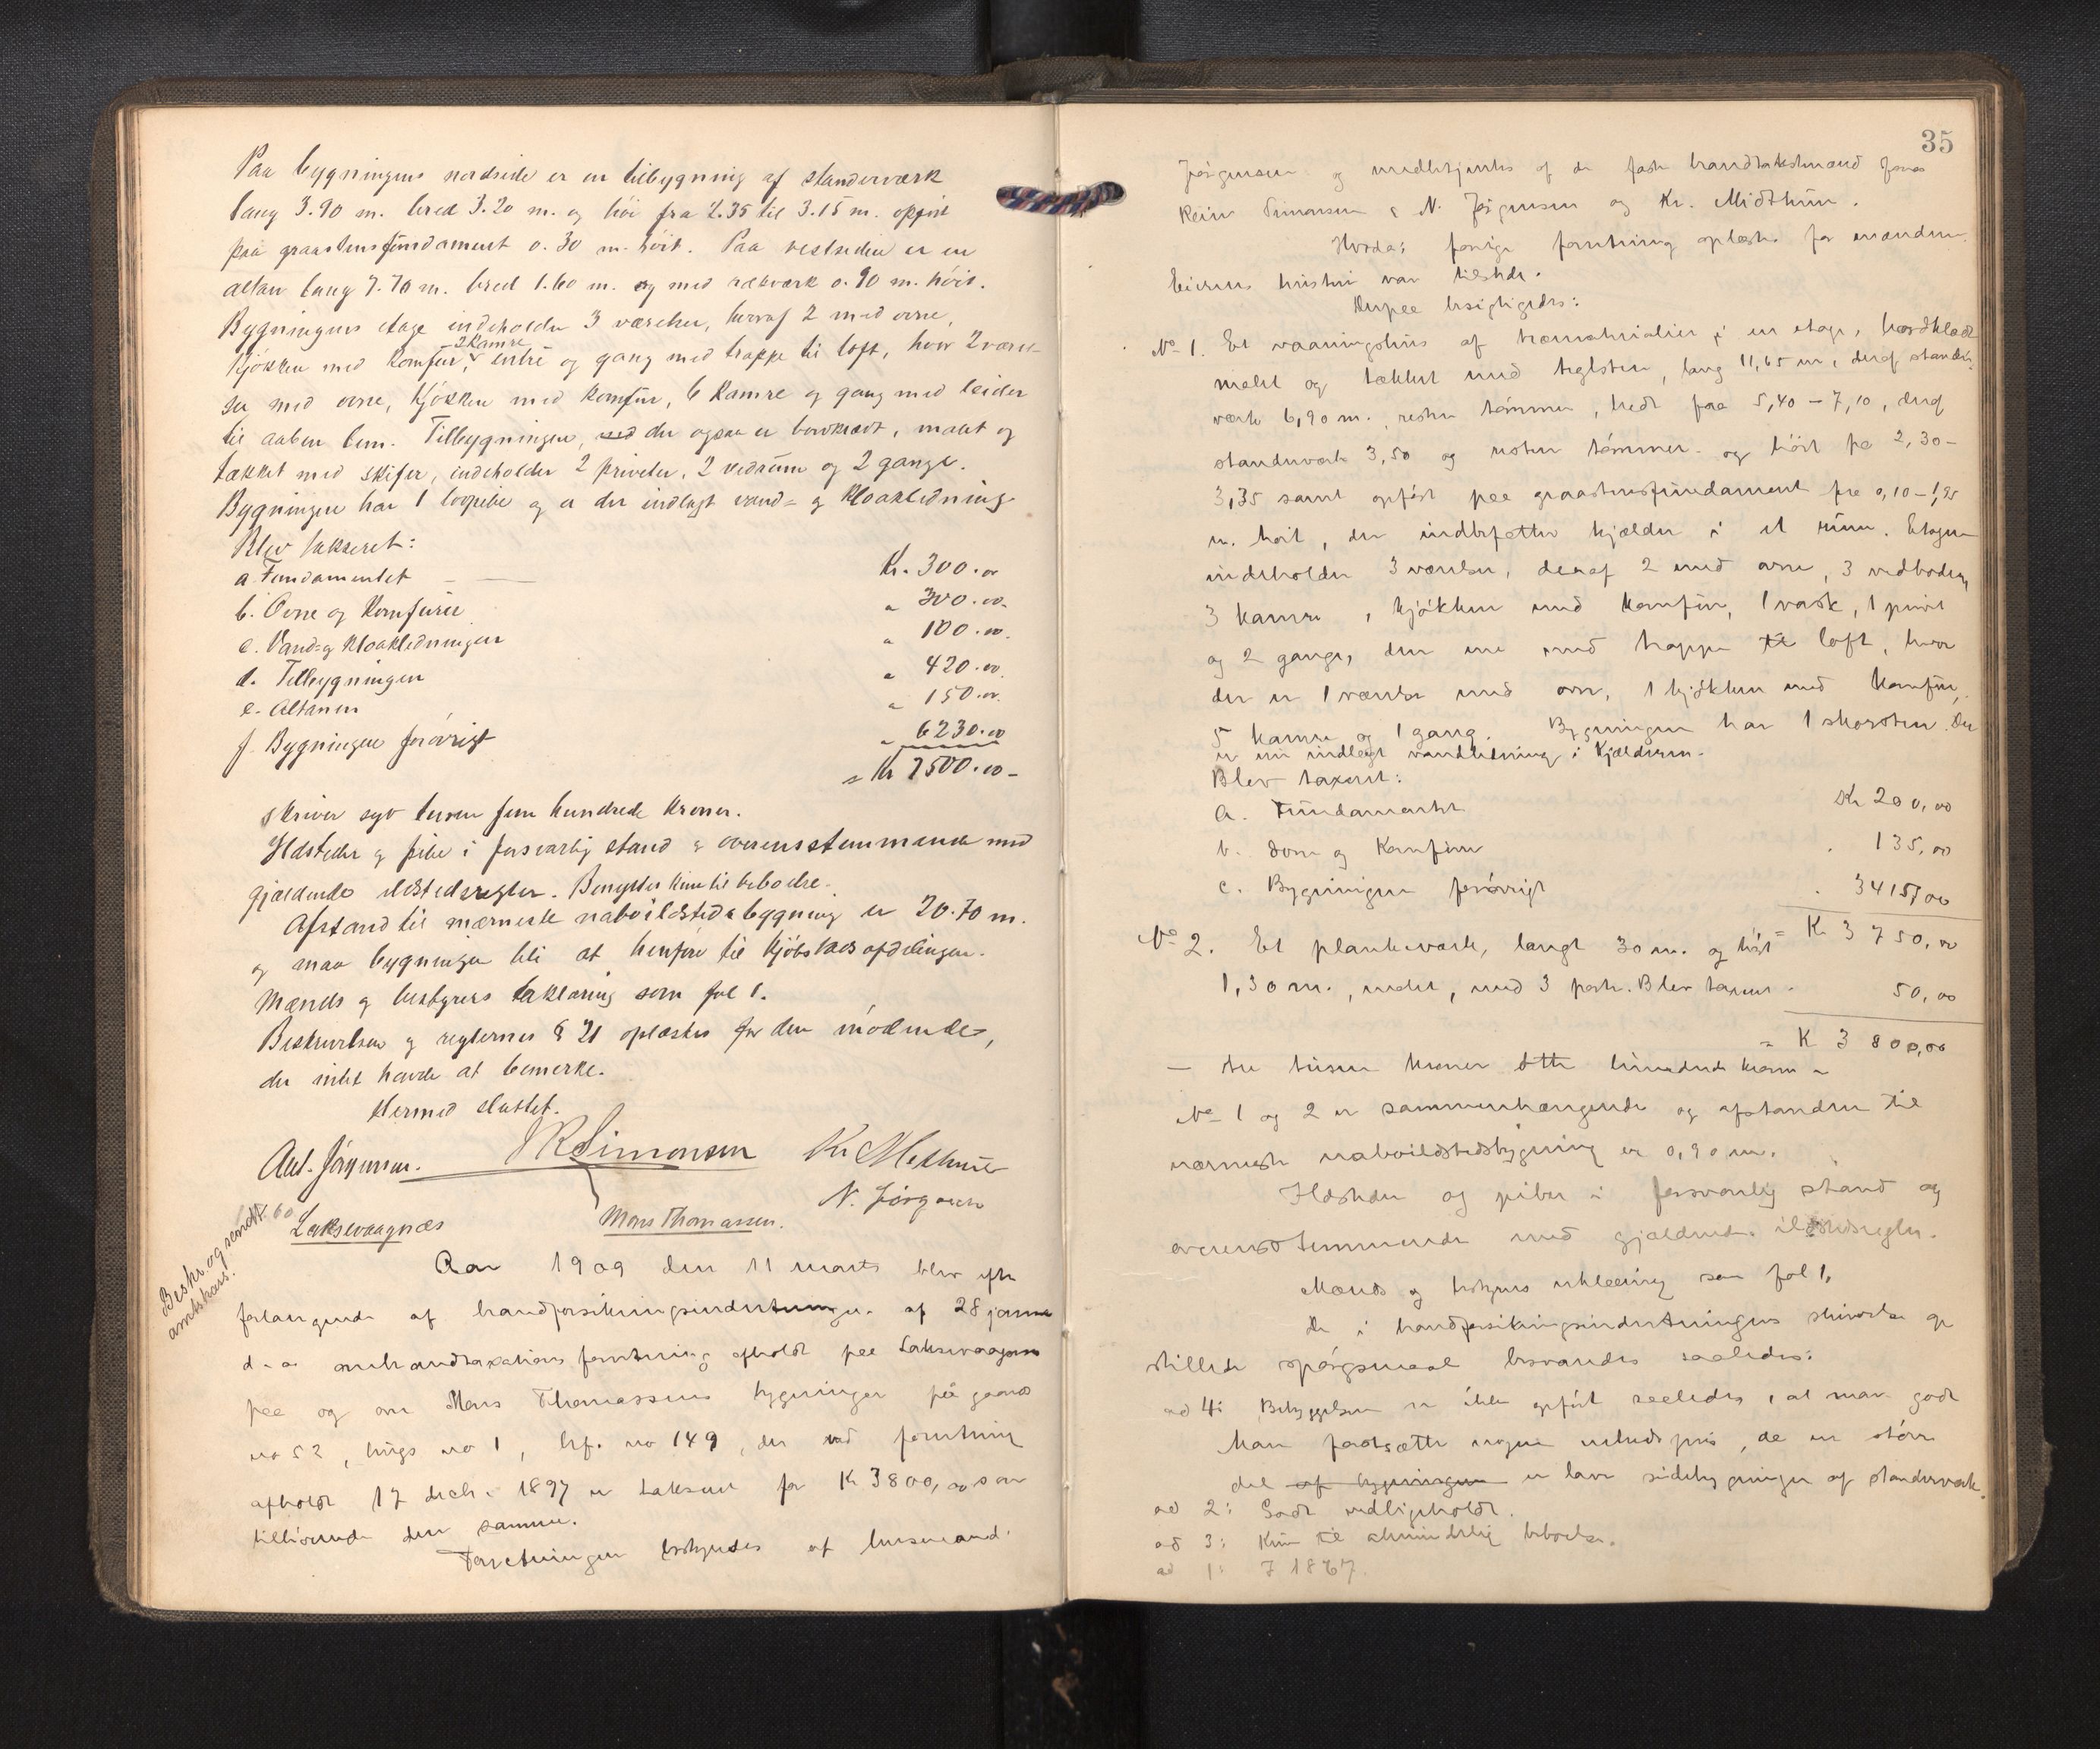 Paa bygningens nordside er en tilbygning af standerværk
lang 3.90 m. bred 3.20 m. og høi fra 2.35 til 3.15 m. opført
paa graastensfundament 0.30 m. høit. Paa vestsiden er en
altan lang 7.70 m. bred 1.60 m. og med rækværk 0.90 m. høit.
Bygningens etage indeholder 3 værelser, herraf 2 med ovne,
2 kamre
kjøkken med komfur, entré og gang med trappe til loft, hvor 2 værel-
ser med ovne, kjøkken med komfur, 6 kamre og gang med leider
til aaben lem. Tilbygningen, med der ogsaa er bordklædt, malet og
tækket med skifer, indeholder 2 priveter, 2 vedrum og 2 gange.
Bygningen har 1 løvpibe og er der indlagt vand- og kloakledning
Blev takseret:
a. Fundamentet Kr. 300.00
b. Ovne og komfurer " 300.00.
c. Vand- og kloakledningen " 100.00.
d. Tilbygningen " 420.00.
e. Altanen " 150.00.
f. Bygningen forøvrigt " 6230.00
= Kr 7500.00 -
skriver syv tusen fem hundrede kroner.
Ildsteder og pibe i forsvarlig stand og overensstemmende med
gjældende ildstedsregler. Benyttes kun til beboelse.
Afstand til nærmeste naboildstedsbygning er 20.70 m.
og maa bygningen bli at henføre til kjøbstadsafdelingen.
Mænds og bestyrers erklæring som fol 1.
Beskrivelsen og reglernes § 21 oplæstes for den mødende,
der intet havde at bemerke.
Hermed sluttet.
Ant. Jørgensen. JRSimonsen Kr Midthun
N. Jørgensen
Beskr. og sendt
amtskans.
60
Laksevaagnæs Mons Thomassen.
Aar 1909 den 11 marts blev efter
forlangende af brandforsikringsindretningen af 28 januar
d. a. ombrandtaxations forretning afholdt paa Laksevaagnæs
paa og over Mons Thomassens bygninger på gaards
no 52, brugs no 1, brf. no 149, der ved forretning
afholdt 17 decbr. 1897 er takseret for Kr 3800,00 som
tilhørende den samme.
Forretningen bestyrtes af lensmand
35
Jørgensen og medbetjentes af de faste brandtakstmænd Jonas
Rein Simonsen, N. Jørgensen og Kr. Midthun.
Hvorda: forrige forretning oplæstes for mændene.
Eierens hustru var tilstede.
Derpaa besigtigedes:
No 1. Et vaaningshus af træmaterialier i en etage, bordklædt
malet og tækket med teglsten, lang 11,65 m, deraf stander-
værk 6,90 m, resten tømmer, bredt fra 5,40 - 7,10, deraf
standerværk 3,50 og resten tømmer og høit fra 2,30 -
3,35 samt opført paa graastensfundament fra 0,10 - 1,95
m. høit, der indbefatter kjælder i et rum. Etagen
indeholder 3 værelser, deraf 2 med ovne, 3 vedboder,
3 kamre, kjøkken med komfur, 1 vask, 1 privet
og 2 gange, den ene med trappe til loft, hvor
der er 1 værelse med ovn, 1 kjøkken med komfur,
5 kamre og 1 gang. Bygningen har 1 skorsten. Der
er nu indlagt vandledning i kjælderen.
Blev taxeret:
a. Fundamentet Kr 200,00
b. Ovne og komfurer " 135,00
c. Bygningen forøvrigt " 3415,00
= Kr 3 750,00
No 2. Et plankeværk, langt 30 m. og høit
1,30 m., malet, med 3 porte. Blev taxeret " 50,00
= K 3 800,00
- tre tusen kroner otte hundrede kroner -
No 1 og 2 er sammenhængende og afstanden til
nærmeste naboildstedsbygning er 0,90 m.
Ildsteder og piber i forsvarlig stand og
overensstemmende med gjældende ildstedsregler.
Mænds og bestyrers erklæring som fol 1.
De i brandforsikringsindretningens skrivelse op
stillede spørgsmaal besvaredes saaledes:
ad 4: Bebyggelsen er ikke opført saaledes, at man godt
kan fastsætte nogen enhedspris, da en større
del af bygningen er lave sidebygninger af standerværk.
ad 2: Godt vedligeholdt.
ad 3: Kun til almindelig beboelse.
ad 1: I 1867.